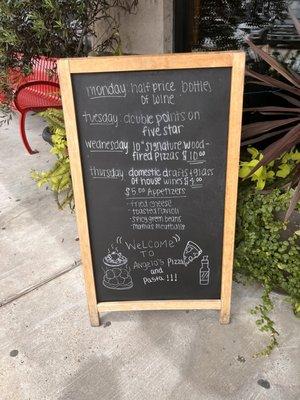 monday half price bottles
of wine
tuesday double points on
five star
wednesday 10" signature wood-
fired pizzas $10.00
thursday domestic drafts & glass
of house wines $4.00
$5.00 Appetizers
- fried cheese
- toasted ravioli
- spicy green beans
- mama's meatballs
WELCOME
TO
Angelo's Pizza
and
Pasta!!!